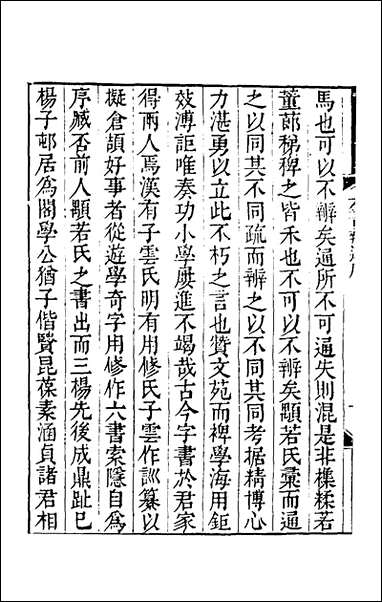 馬也可以不辨矣逼所不可逼失則混是非櫵糅若
董蓈稊稗之皆禾也不可以不辨矣顯若氏彙而通
之以同其不同疏而辨之以不同其同考据精博心
力湛勇以立此不朽之言也贊文苑而裨學海用鉅
效溥詎唯奏功小學屢進不竭哉古今字書於君家
得兩人焉漢有子雲氏明有用修氏子雲作訓纂以
擬倉頡好事者從遊學奇字用修作六書索隱自爲
序臧否前人顯若氏之書出而三楊先後成鼎趾巳
楊子邨居爲閣學公猶子偕賢昆葆素涵貞諸君相